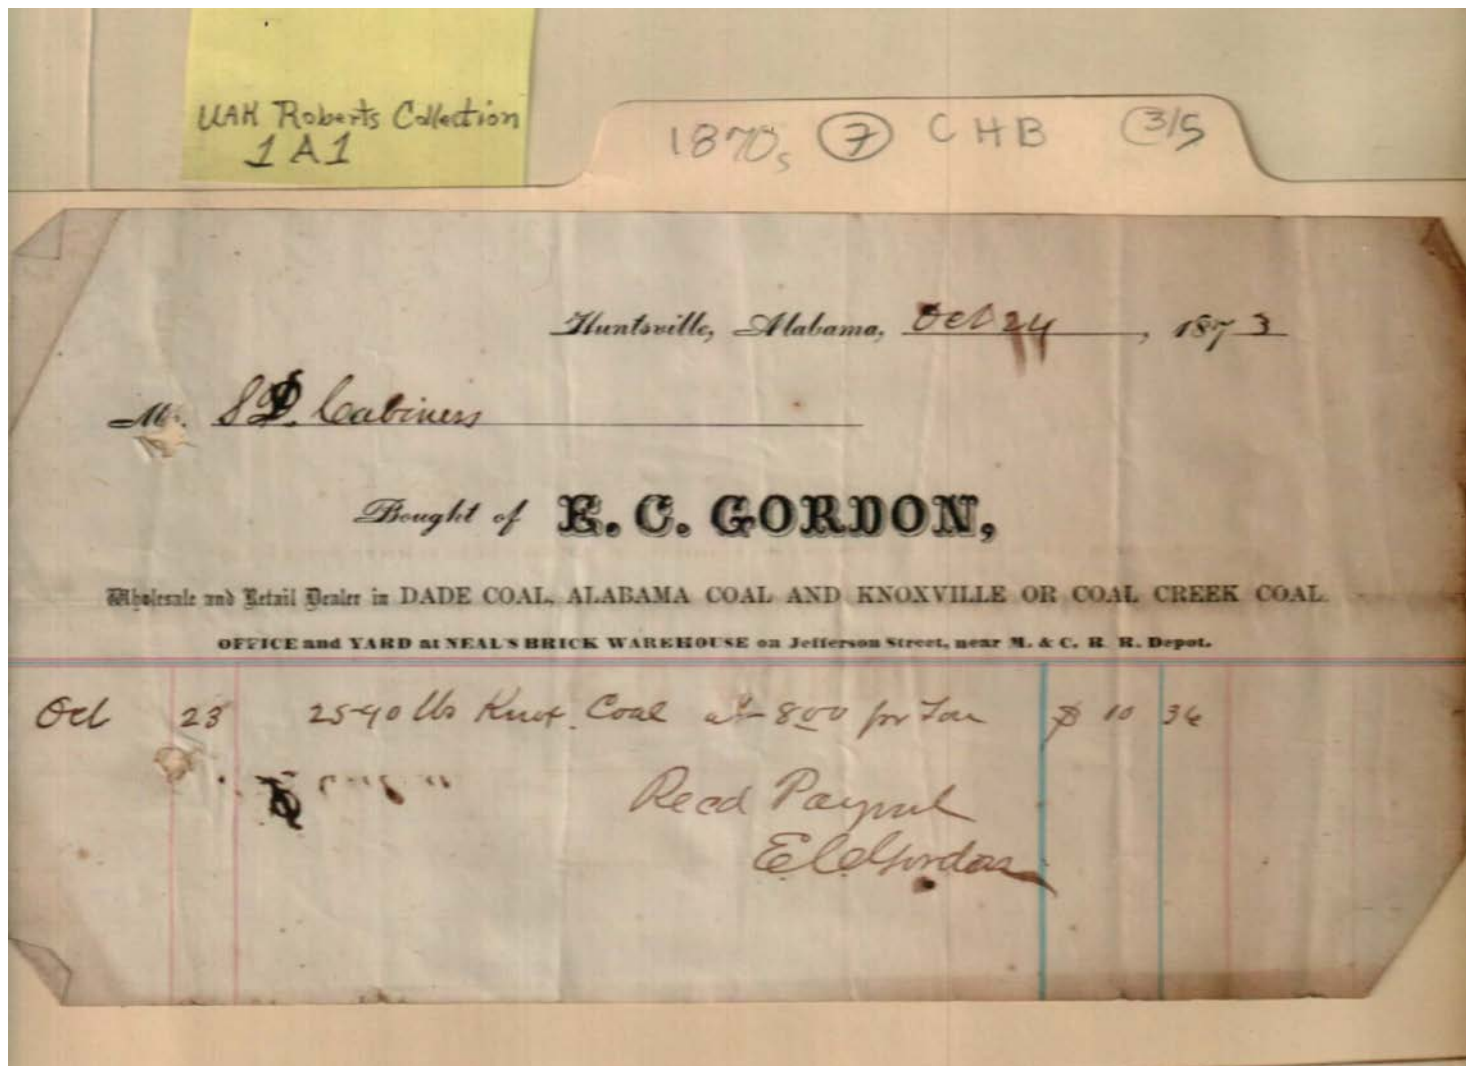 UAH Roberts Collection
1A1
1870s 7 CHB 3/5
Huntsville, Alabama, Oct 24, 1873
Mr. S D. Cabiners
Bought of E. C. GORDON,
Wholesale and Retail Dealer in DADE COAL, ALABAMA COAL AND KNOXVILLE OR COAL CREEK COAL.
OFFICE and YARD at NEAL'S BRICK WAREHOUSE on Jefferson Street, near M. & C. R. R. Depot.
Oct 23 2540 lbs Knox. Coal at 800 per Ton $ 10 36
Recd Paymt
E C Gordon